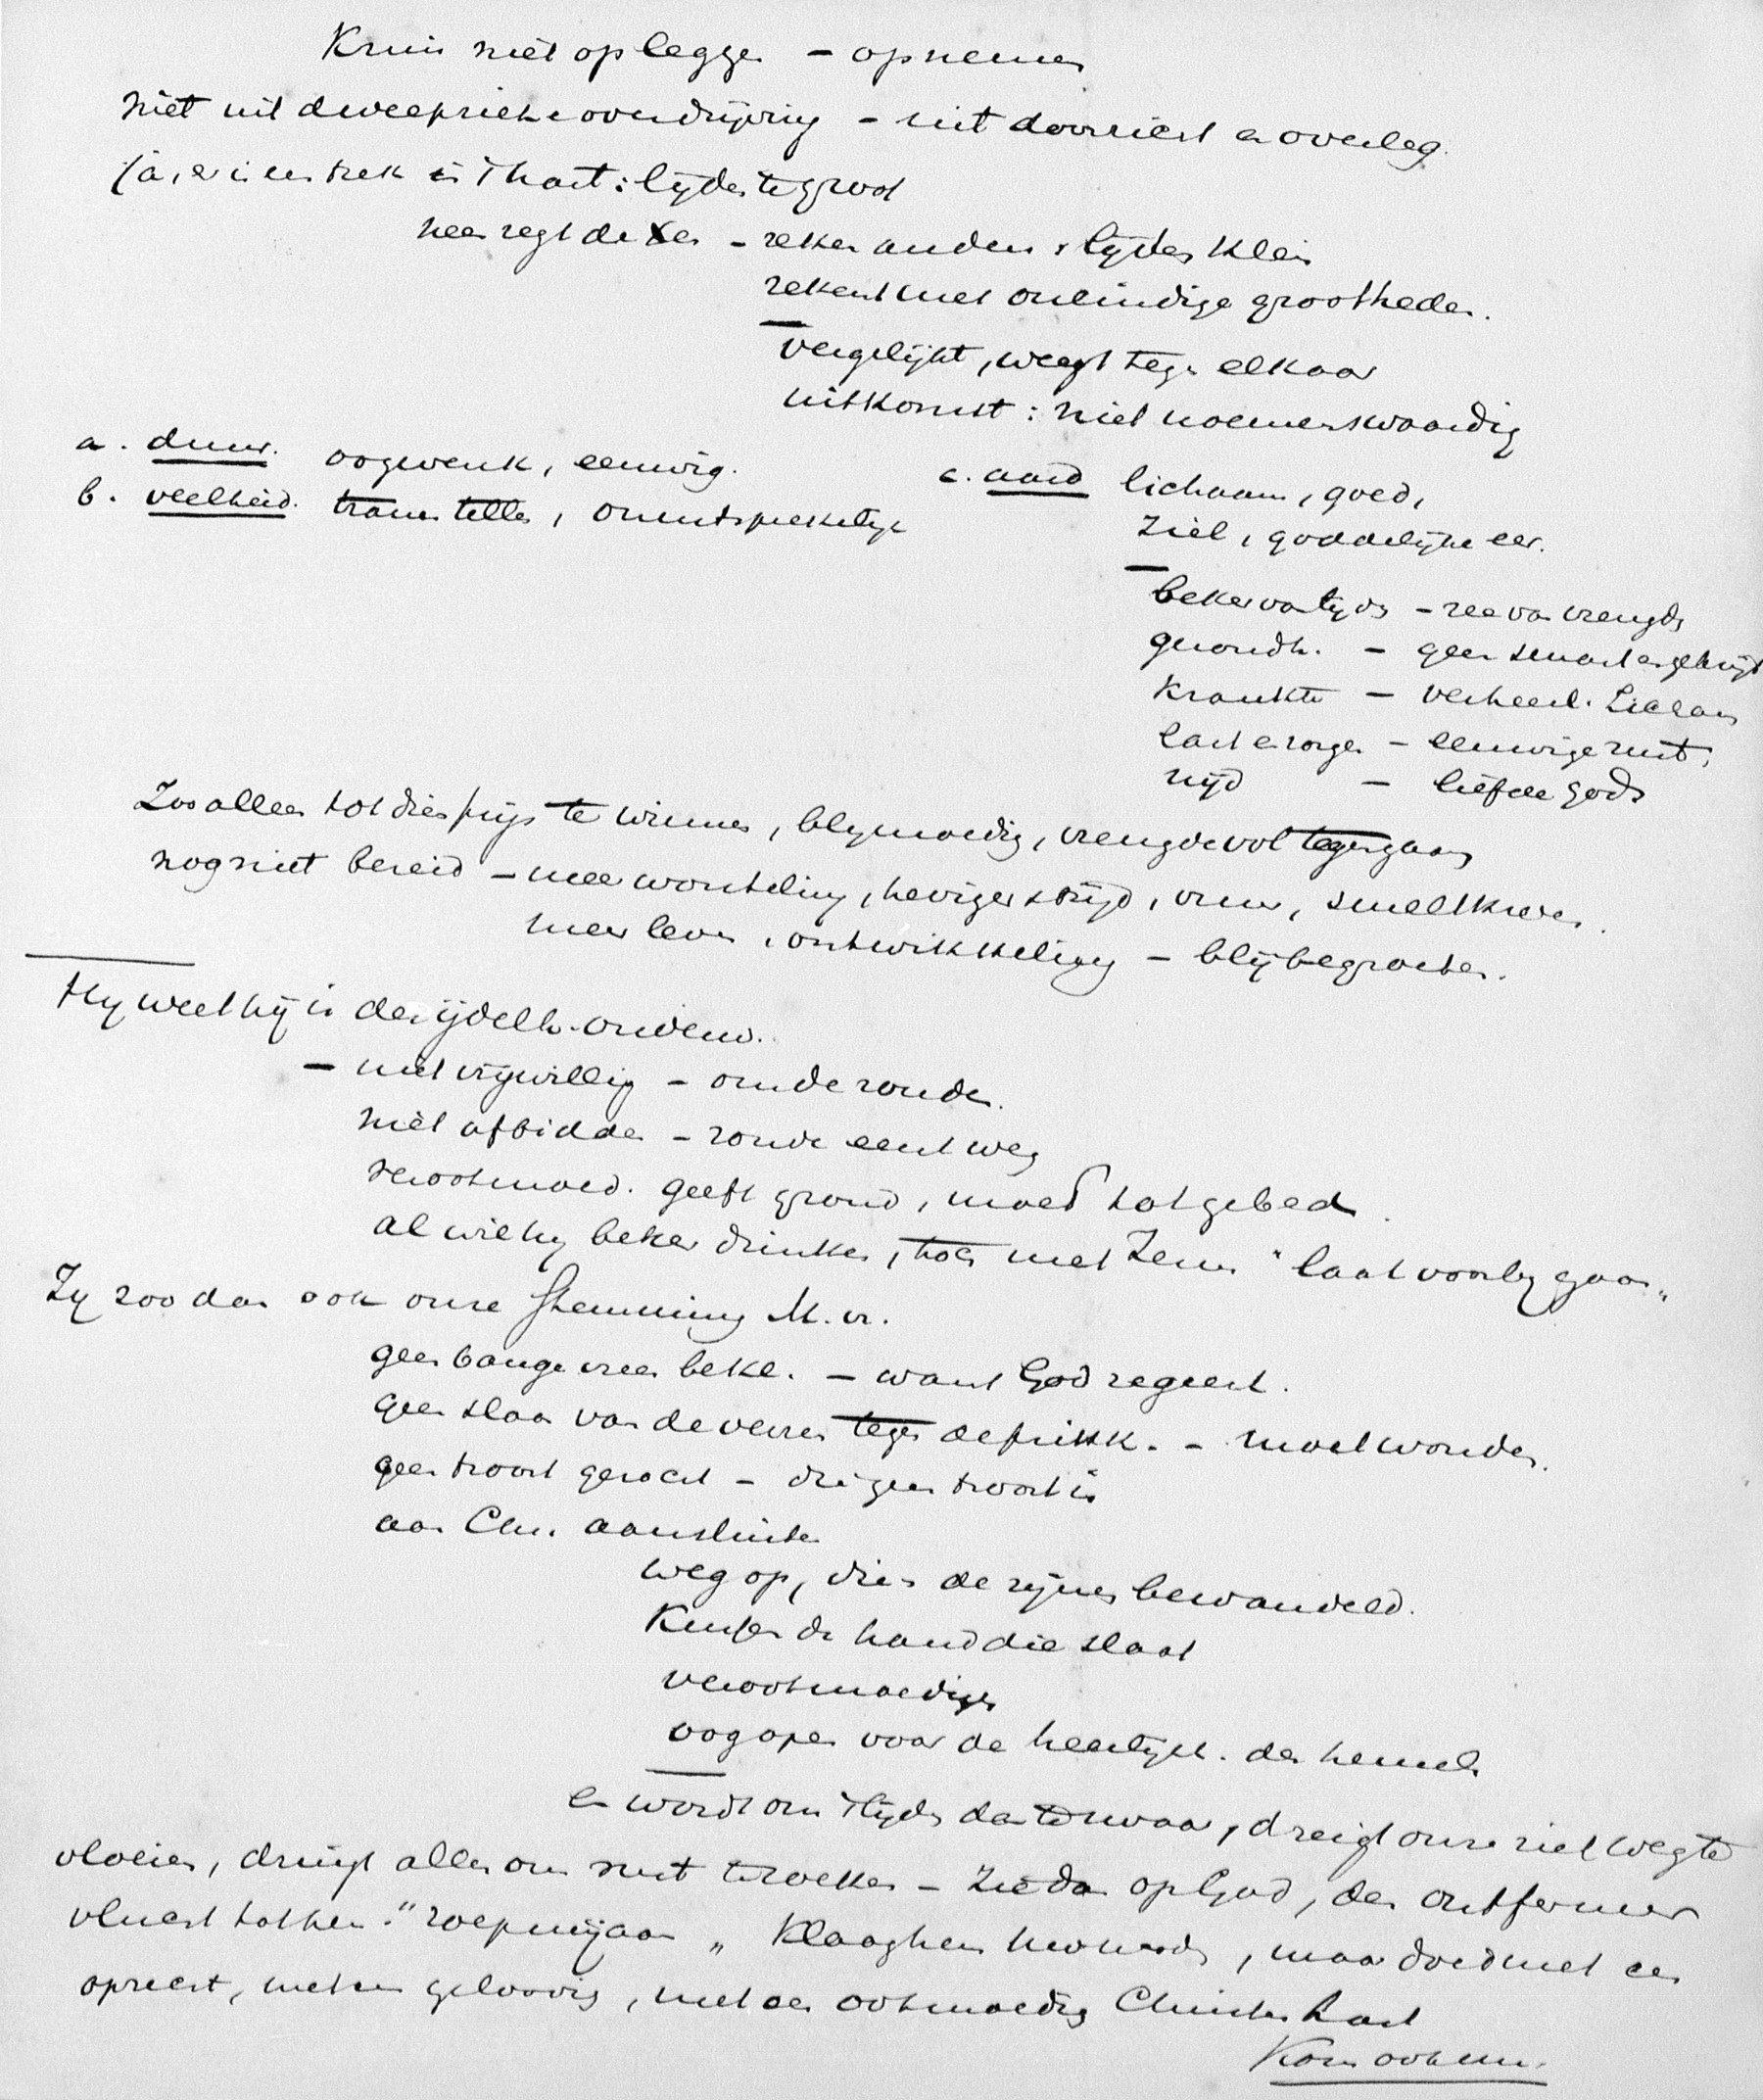 Kruis niet opleggen – opnemen
niet uit dweepzieke overdrijving – uit doorzicht en overleg.
ja, er is een trek in 't hart: lijden te groot
neen zegt de Xen – reken anders, lijden klein
rekent met oneindige grootheden.
vergelijkt, weegt tegen elkaar
uitkomst: niet noemenswaardig
a. duur. oogwenk, eeuwig.
b. veelheid. tranen tellen, onuitsprekelijk
c. aard lichaam, goed,
ziel, goddelijke eer.
beker van lijden – zee van vreugde
gezondh. – geen smart en gekrijt
krankte – verheerl. lichaam
last en zorgen – eeuwige rust,
nijd – liefde Gods
Zoo alleen tot dien prijs te winnen, blijmoedig, vreugdevol tegengaan
nog niet bereid – meer worsteling, heviger strijd, vuur, smeltkroes.
meer leven, ontwikkeling – blij begroeten.
Hij weet hij is der ijdelh. onderw.
– niet vrijwillig – om de zonde.
niet afbidden – zonde eerst weg
verootmoed. geeft grond, moed tot gebed.
al wil hij beker drinken, toch met Jezus "laat voorbij gaan"
Zij zoo dan ook onze stemming M. vr.
geen bange vrees bekl. – want God regeert.
geen slaan van de verzen tegen de prikk. – moet wonden.
geen troost gezocht – die geen troost is
aan Chr. aansluiten
weg op, dien de zijnen bewandeld.
Kussen de hand die slaat
verootmoedigen
oog open voor de heerlijkh. des hemels
en wordt ons 't lijden dan te zwaar, dreigt onze ziel weg te
vloeien, dringt alles ons rust te zoeken – Zie dan op God, den ontfermer
vlucht tot hen." roep mij aan " Klaag hem uw noods, maar doe dit met een
oprecht, met een geloovig, met een ootmoedig Christen hart
Kom ootm.